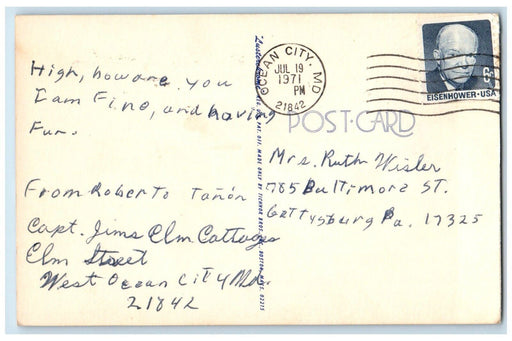 High, howare you
I am Fine, and having
Fun.
From Roberto Tañón
Capt. Jims Elm Cottages
Elm Street
West Ocean City Md.
21842
OCEAN CITY. MD
JUL 19
1971
PM
21842
EISENHOWER·USA
POST CARD
Mrs. Ruth Wisler
785 Baltimore ST.
Gettysburg Pa. 17325